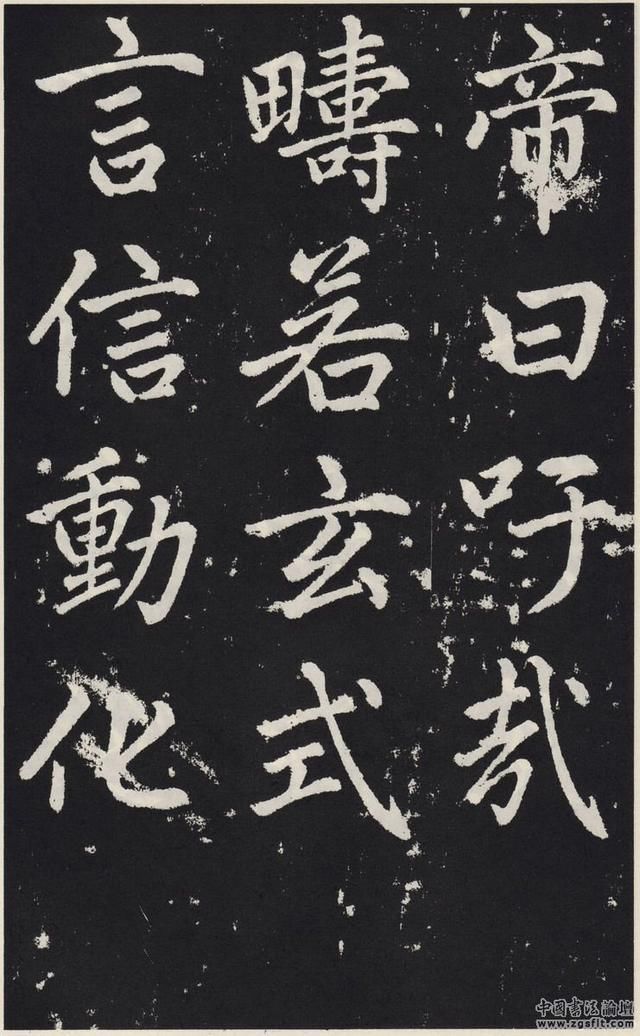 帝曰吁哉
疇若玄式
言信動化
中國書法論壇
www.zgsflt.com